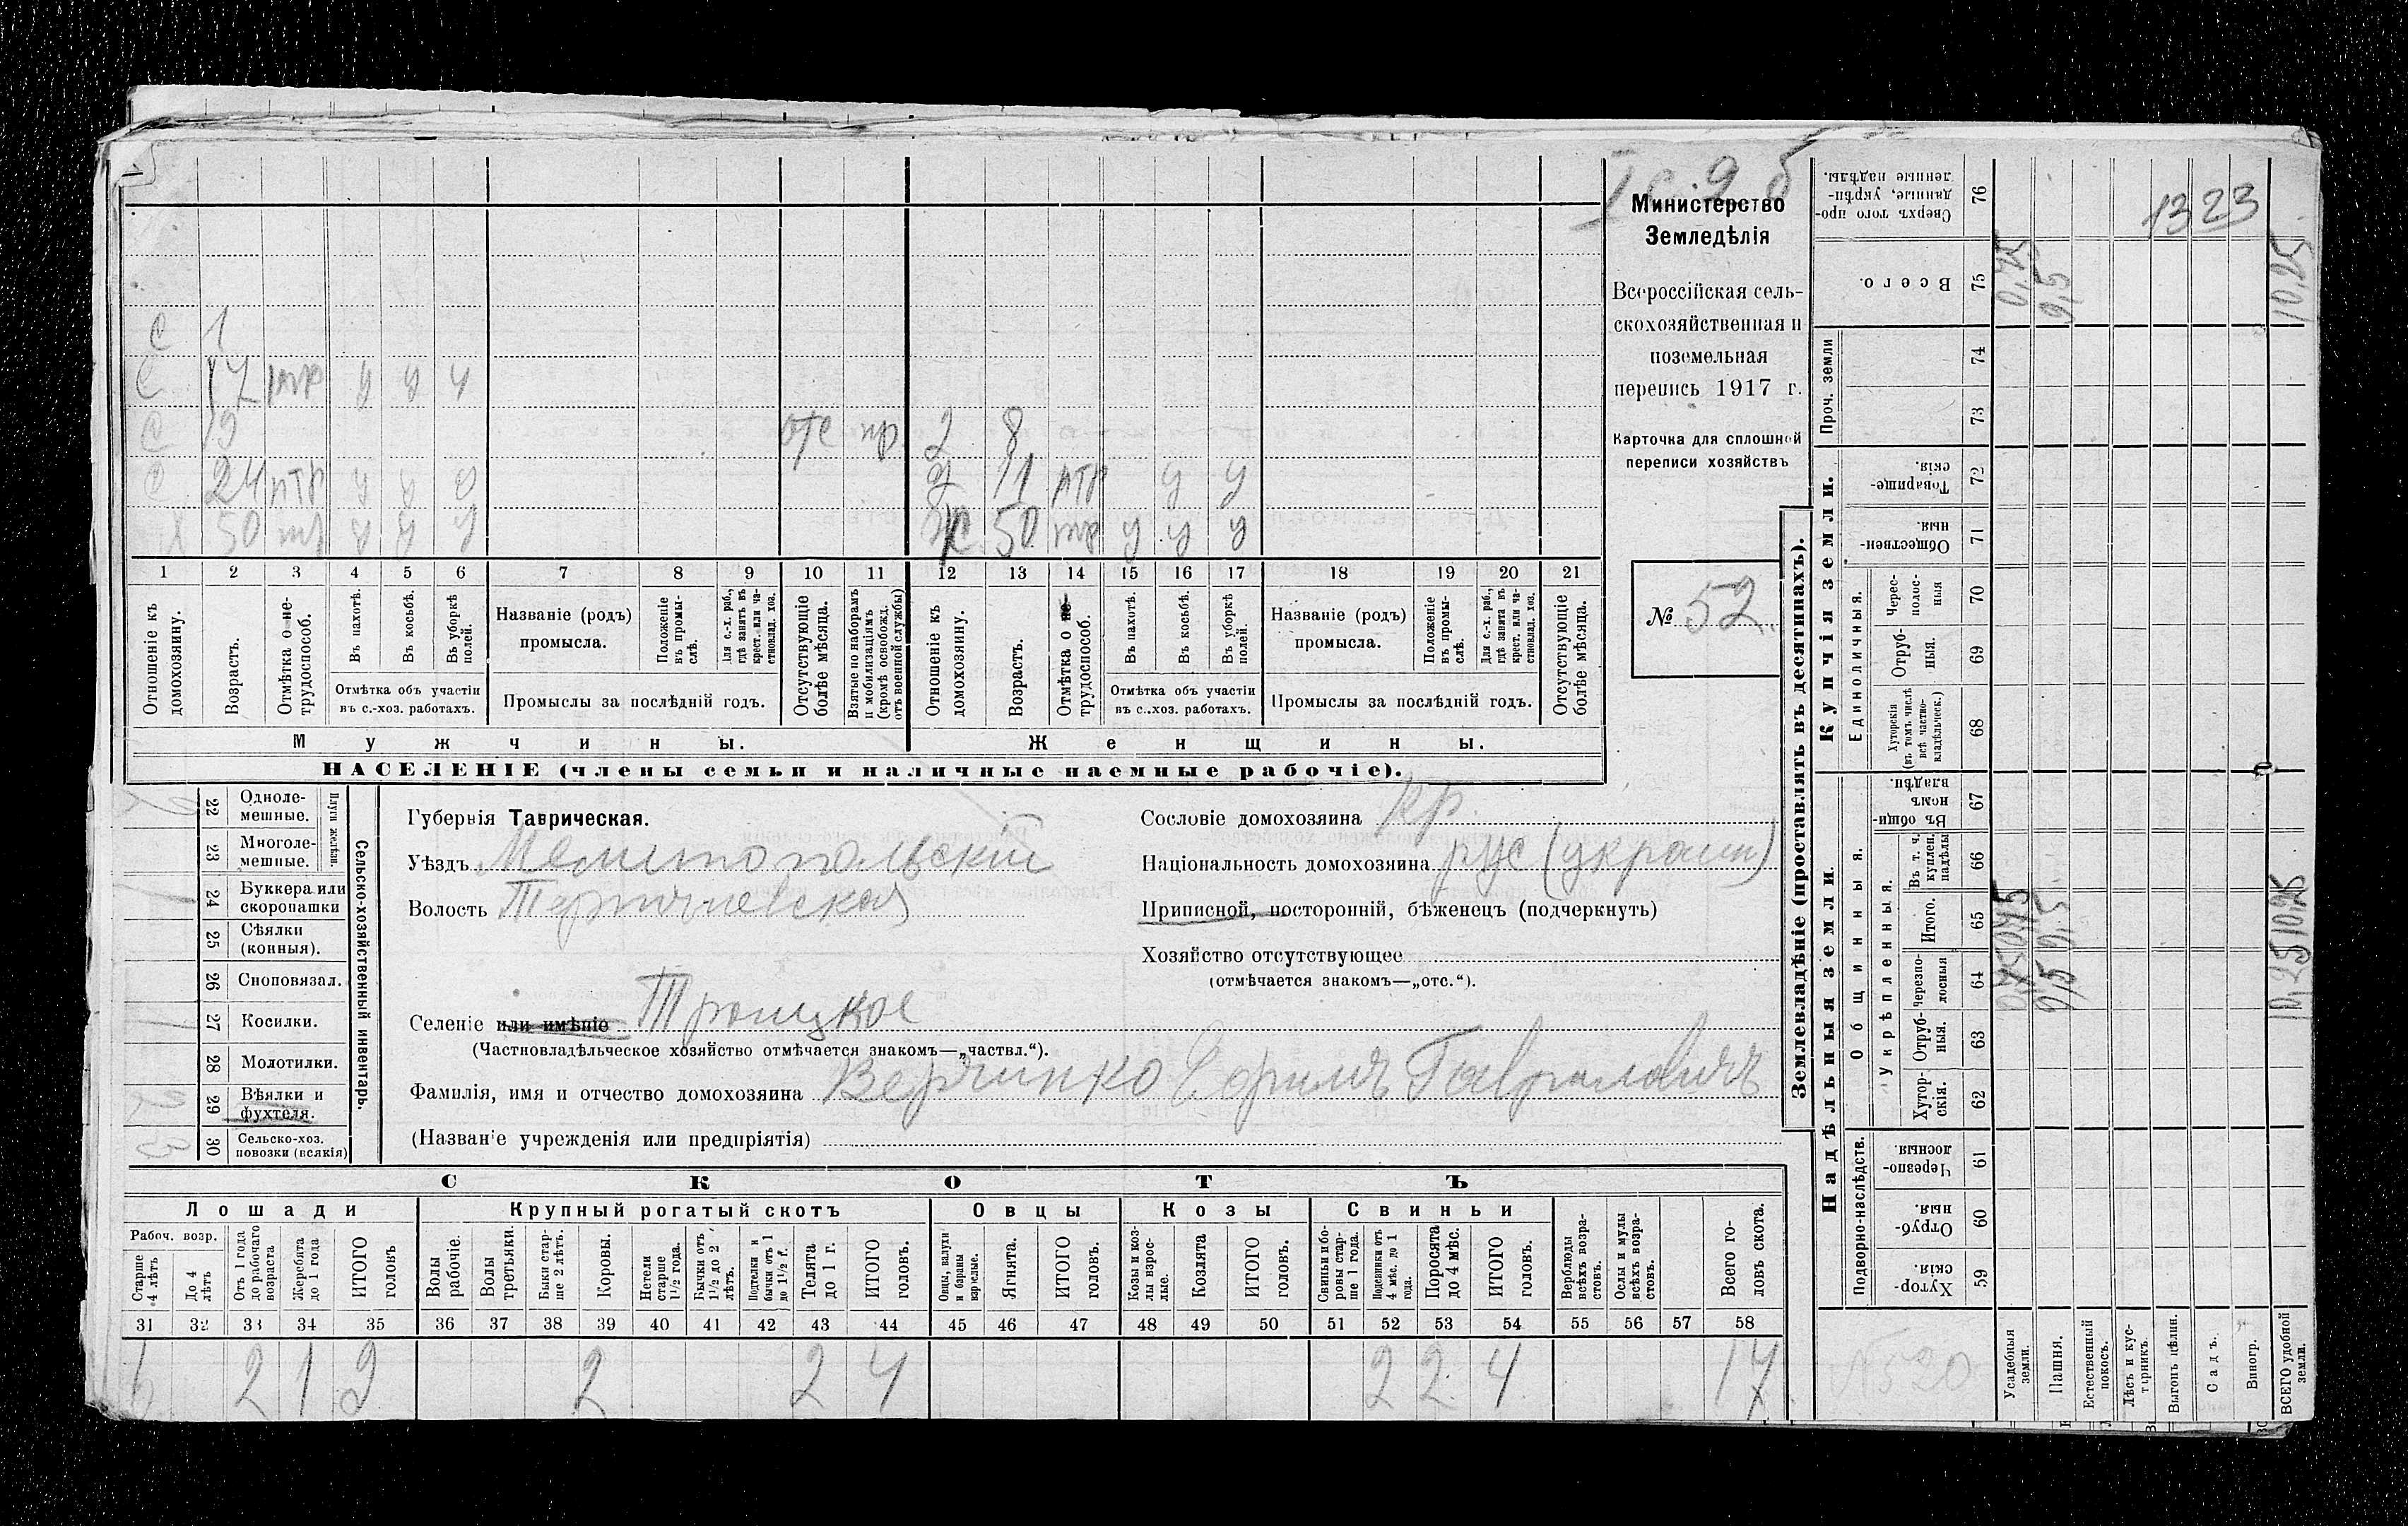 1323
Министерство
Земледѣлія
Всероссійская сель-
скохозяйственная и
поземельная
перепись 1917 г.
Карточка для сплошной
переписи хозяйствъ
№ 52
С 1
С 17 птр у у у
С 19 отс пр д 8
С 24 птр у у у д 11 птр у у
Х 50 тр у у у Ж 50 тр у у у
1 2 3 4 5 6 7 8 9 10 11 12 13 14 15 16 17 18 19 20 21
Отношеніе къ домохозяину.
Возрастъ.
Отмѣтка о не-трудоспособ.
Въ пахотѣ.
Въ косьбѣ.
Въ уборкѣ полей.
Отмѣтка объ участіи
въ с.-хоз. работахъ.
Названіе (родъ)
промысла.
Положеніе въ промы-слѣ.
Для с.-х. раб., гдѣ занятъ въ крест. или ча-стновлад. хоз.
Промыслы за послѣдній годъ.
Отсутствующіе болѣе мѣсяца.
Взятые по наборамъ и мобилизаціямъ (кромѣ освобожд. отъ военной службы)
Отношеніе къ домохозяину.
Возрастъ.
Отмѣтка о не-трудоспособ.
Въ пахотѣ.
Въ косьбѣ.
Въ уборкѣ полей.
Отмѣтка объ участіи
въ с.-хоз. работахъ.
Названіе (родъ)
промысла.
Положеніе въ промы-слѣ.
Для с.-х. раб., гдѣ занята въ крест. или ча-стновлад. хоз.
Промыслы за послѣдній годъ.
Отсутствующіе болѣе мѣсяца.
Мужчины.
Женщины.
НАСЕЛЕНІЕ (члены семьи и наличные наемные рабочіе).
22 Одноле-мешные.
23 Многоле-мешные.
Плуги желѣзн.
24 Буккера или скоропашки
25 Сѣялки (конныя).
26 Сноповязал.
27 Косилки.
28 Молотилки.
29 Вѣялки и фухтеля.
30 Сельско-хоз. повозки (всякія)
Сельско-хозяйственный инвентарь.
Губернія Таврическая.
Уѣздъ Мелитопольскій
Волость Терпениевская
Селеніе или имѣніе Троицкое
(Частновладѣльческое хозяйство отмѣчается знакомъ—„частвл.“).
Фамилія, имя и отчество домохозяина Верчинко Гавриловичъ
(Названіе учрежденія или предпріятія)
Сословіе домохозяина кр.
Національность домохозяина рус (украин)
Приписной, посторонній, бѣженецъ (подчеркнуть)
Хозяйство отсутствующее
(отмѣчается знакомъ—„отс.“).
СКОТЪ
Лошади
Крупный рогатый скотъ
Овцы
Козы
Свиньи
Рабоч. возр.
Старше 4 лѣтъ
До 4 лѣтъ
Отъ 1 года до рабочаго возраста
Жеребята до 1 года
ИТОГО головъ
Волы рабочіе.
Волы третьяки.
Быки стар-ше 2 лѣтъ.
Коровы.
Нетели старше 1½ года.
Бычки отъ 1½ до 2 лѣтъ.
Подтелки и бычки отъ 1 до 1½ г.
Телята до 1 г.
ИТОГО головъ.
Овцы, валухи и бараны взрослые.
Ягнята.
ИТОГО головъ.
Козы и коз-лы взрос-лые.
Козлята
ИТОГО головъ.
Свиньи и бо-ровы стар-ше 1 года.
Подсвинки отъ 4 мѣс. до 1 года.
Поросята до 4 мѣс.
ИТОГО головъ.
Верблюды всѣхъ возра-стовъ.
Ослы и мулы всѣхъ возра-стовъ.
Всего го-ловъ скота.
31 32 33 34 35 36 37 38 39 40 41 42 43 44 45 46 47 48 49 50 51 52 53 54 55 56 57 58
6 2 1 9 2 2 4 2 2 4 17
Землевладѣніе (проставлять въ десятинахъ).
Надѣльныя земли.
Купчія земли.
Проч. земли
Подворно-наслѣдств.
Общинныя.
Укрѣпленныя.
Единоличныя.
59 Хутор-скія.
60 Отруб-ныя.
61 Черезпо-лосныя
62 Хутор-скія.
63 Отруб-ныя.
64 Черезпо-лосныя
65 Итого.
66 Въ т. ч. куплен. надѣлы
67 Въ общин-номъ владѣн.
68 Хуторскія (въ томъ числѣ всѣ частно-владѣльческ.)
69 Отруб-ныя.
70 Черес-полос-ныя
71 Обществен-ныя.
72 Товарище-скія.
73
74
75 Всего.
76 Сверхъ того про-данные, укрѣп-ленные надѣлы.
Усадебныя земли. 0,75 0,75 0,75
Пашня. 9,5 9,5 9,5
Естественный покосъ.
Лѣсъ и кус-тарникъ.
Выгонъ цѣлин.
Садъ.
Виногр.
ВСЕГО удобной земли. 10,25 10,25 10,25